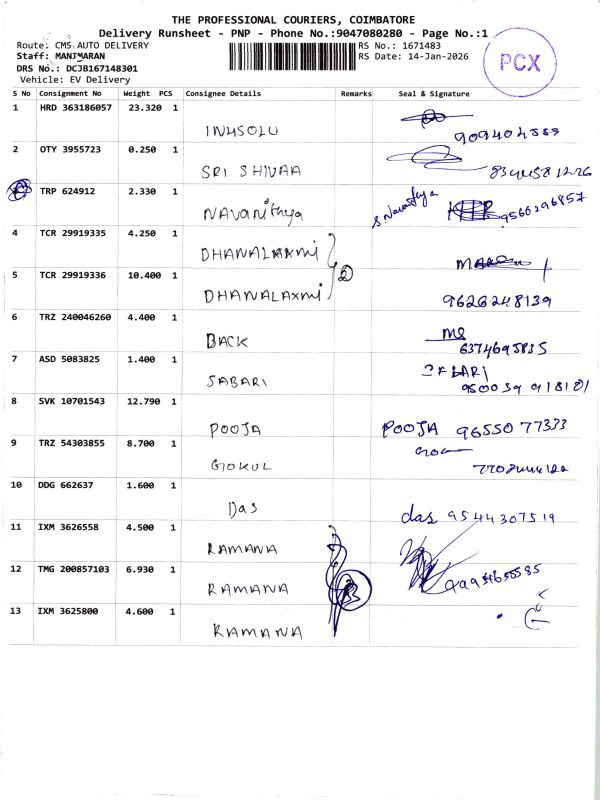 THE PROFESSIONAL COURIERS, COIMBATORE
Delivery Runsheet - PNP - Phone No.:9047080280 - Page No.:1
Route: CMS AUTO DELIVERY
RS No.: 1671483
Staff: MANIMARAN
RS Date: 14-Jan-2026
DRS No.: DCJB167148301
Vehicle: EV Delivery
PCX
S No Consignment No Weight PCS Consignee Details Remarks Seal & Signature
1 HRD 363186057 23.320 1
INUSOLU
2 OTY 3955723 0.250 1
SRI SHIVAA
TRP 624912 2.330 1
NAVANITHYA
S. Navanithya 9566296857
4 TCR 29919335 4.250 1
DHANALAXMI
5 TCR 29919336 10.400 1
2
DHANALAXMI 9626248139
6 TRZ 240046260 4.400 1
BACK
6374695835
7 ASD 5083825 1.400 1
SABARI
8 SVK 10701543 12.790 1
POOJA POOJA 96550 77333
9 TRZ 54303855 8.700 1
GOKUL
10 DDG 662637 1.600 1
Das das 9544307519
11 IXM 3626558 4.500 1
RAMANA
12 TMG 200857103 6.930 1
RAMANA 3
13 IXM 3625800 4.600 1
RAMANA